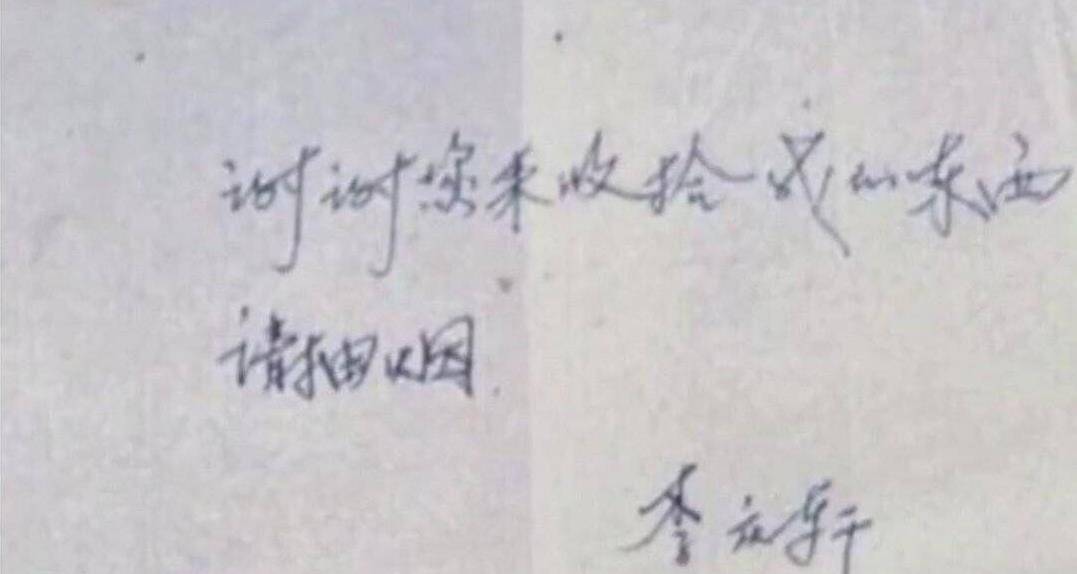 谢谢您来收拾我的东西
请抽烟.
李庆轩